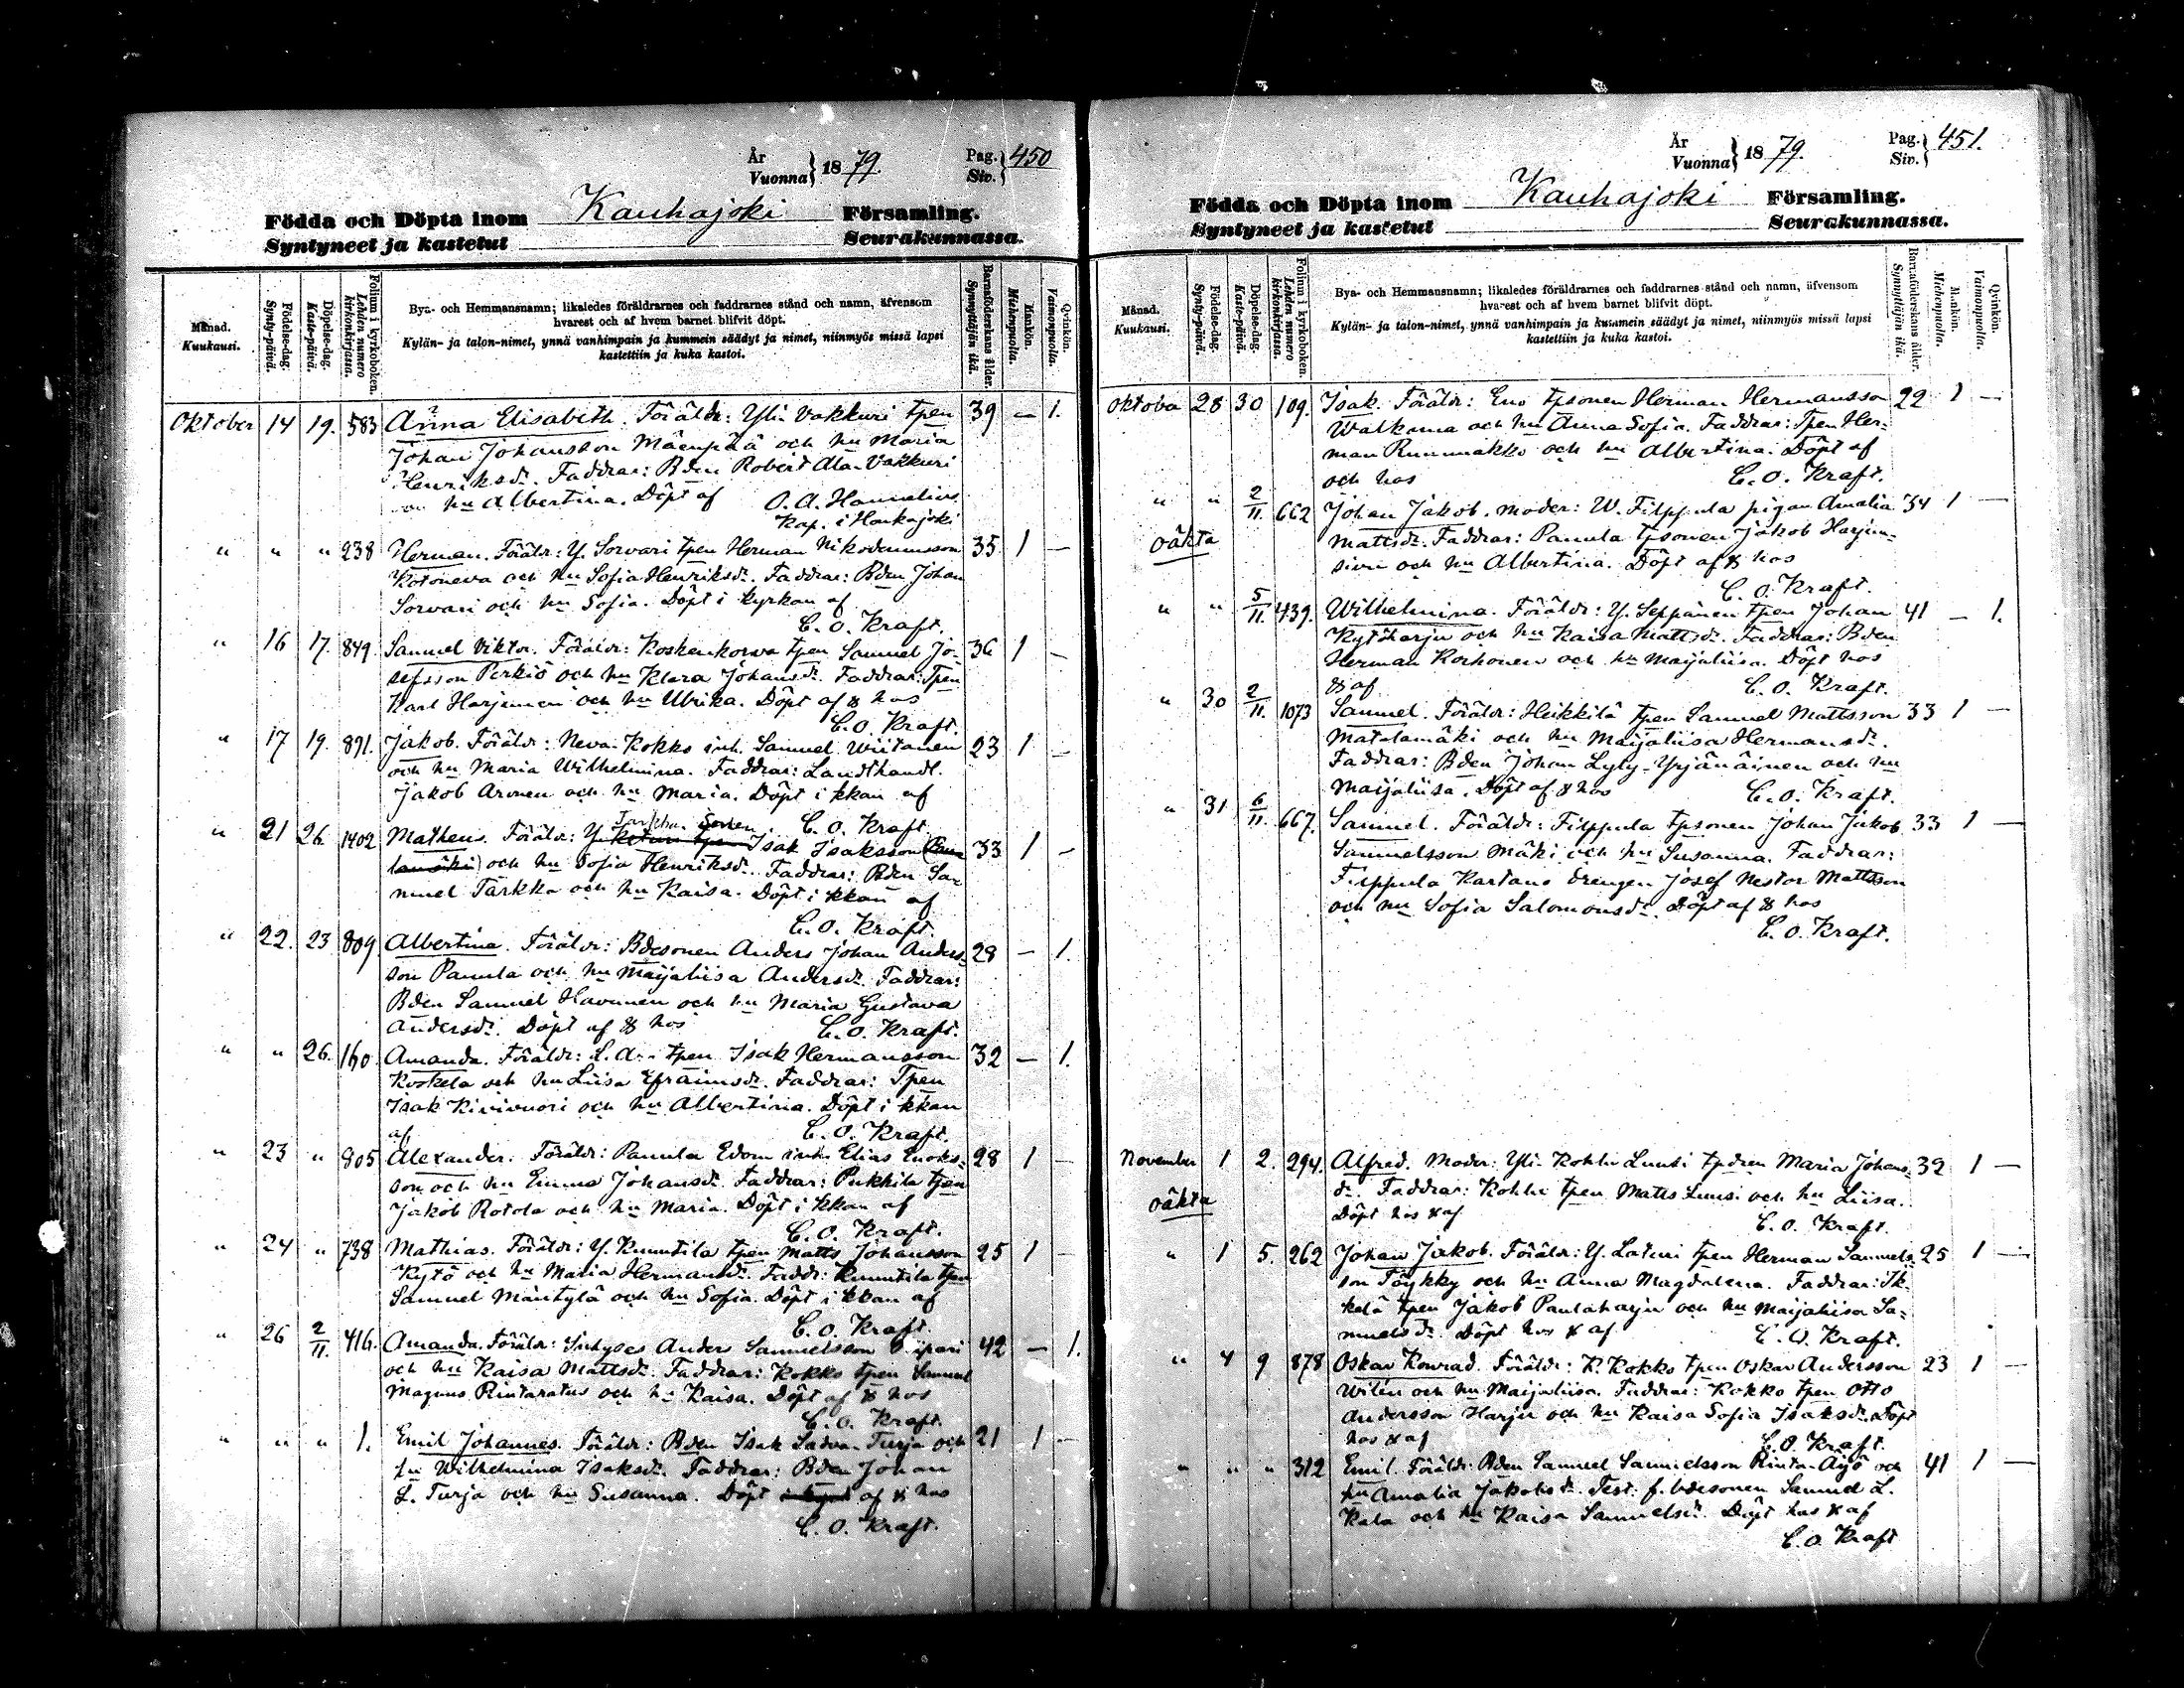 År
Vuonna } 1879.
Pag.
Siv. } 450
Födda och Döpta inom Kauhajoki Församling.
Syntyneet ja kastetut Seurakunnassa.
Månad.
Kuukausi.
Födelse-dag.
Synty-päivä.
Döpelse-dag.
Kaste-päivä.
Folium i kyrkoboken.
Lehden numero kirkonkirjassa.
Bya- och Hemmansnamn; likaledes föräldrarnes och faddrarnes stånd och namn, äfvensom
hvarest och af hvem barnet blifvit döpt.
Kylän- ja talon-nimet, ynnä vanhimpain ja kummein säädyt ja nimet, niinmyös missä lapsi
kastettiin ja kuka kastoi.
Barnaföderskans ålder.
Synnyttäjän ikä.
Mankön.
Miehenpuolia.
Qvinkön.
Vaimonpuolia.
Oktober 14 19. 583 Anna Elisabeth. Föräldr: Yli-Vakkuri tpen 39 — 1.
Johan Johansson Mäenpää och hu Maria
Henriksdr. Faddrar: Bden Robert Ala-Vakkuri
hu Albertina. Döpt af O. A. Hannelius
Kap. i Honkajoki
" " " 238 Herman. Föräldr: Y. Sorvari tpen Herman Nikodemusson 35 1 —
Kotoneva och hu Sofia Henriksdr. Faddrar: Bden Johan
Sorvari och hu Sofia. Döpt i kyrkan af
C. O. Kraft.
" 16 17. 849. Samuel Viktor. Föräldr: Koskenkorva tpen Samuel Jo- 36 1 —
sefsson Perkiö och hu Klara Johansdr. Faddrar: Tpen
Karl Harjunen och hu Ulrika. Döpt af & hos
C. O. Kraft.
" 17 19. 891. Jakob. Föräldr: Neva-Kokko inh. Samuel Wiitanen 23 1 —
och hu Maria Wilhelmina. Faddrar: Landthandl.
Jakob Aronen och hu Maria. Döpt i kkan af
C. O. Kraft
" 21 26. 1402 Matheus. Föräldr: Y. Isak Isaksson 33 1 —
och hu Sofia Henriksdr. Faddrar: Bden Sa-
muel Tarkka och hu Kaisa. Döpt i kkan af
C. O. Kraft.
" 22. 23 809. Albertina. Föräldr: Bdesonen Anders Johan Anders- 28 — 1.
son Panula och hu Maijaliisa Andersdr. Faddrar:
Bden Samuel Havunen och hu Maria Gustava
Andersdr. Döpt af & hos C. O. Kraft.
" " 26. 160. Amanda. Föräldr: L. A. tpen Isak Hermansson 32 — 1.
Koskela och hu Liisa Efraimsdr. Faddrar: Tpen
Isak Kivivuori och hu Albertina. Döpt i kkan
af C. O. Kraft.
" 23 " 805 Alexander. Föräldr: Panula Edom inh. Elias Enoks- 28 1 —
son och hu Emma Johansdr. Faddrar: Pukkila tpen
Jakob Rotola och hu Maria. Döpt i kkan af
C. O. Kraft.
" 24 " 738 Mathias. Föräldr: Y. Knuutila tpen Matts Johansson 25 1 —
Kytö och hu Maria Hermansdr. Faddr: Knuutila tpen
Samuel Mäntylä och hu Sofia. Döpt i kkan af
C. O. Kraft.
" 26 2/11. 416. Amanda. Föräldr: Inhyses Anders Samuelsson 42 — 1.
och hu Kaisa Mattsdr. Faddrar: Kokko tpen Samuel
Magnus Rintaratus och hu Kaisa. Döpt af & hos
C. O. Kraft.
" " " 1. Emil Johannes. Föräldr: Bden Isak Ladva-Turja och 21 1 —
hu Wilhelmina Isaksdr. Faddrar: Bden Johan
L. Turja och hu Susanna. Döpt af & hos
C. O. Kraft.
År
Vuonna } 1879.
Pag.
Siv. } 451.
Födda och Döpta inom Kauhajoki Församling.
Syntyneet ja kastetut Seurakunnassa.
Månad.
Kuukausi.
Födelse-dag.
Synty-päivä.
Döpelse-dag.
Kaste-päivä.
Folium i kyrkoboken.
Lehden numero kirkonkirjassa.
Bya- och Hemmansnamn; likaledes föräldrarnes och faddrarnes stånd och namn, äfvensom
hvarest och af hvem barnet blifvit döpt.
Kylän- ja talon-nimet, ynnä vanhimpain ja kummein säädyt ja nimet, niinmyös missä lapsi
kastettiin ja kuka kastoi.
Barnaföderskans ålder.
Synnyttäjän ikä.
Mankön.
Miehenpuolia.
Qvinkön.
Vaimonpuolia.
Oktober 28 30 109. Isak. Föräldr: Eno tpsonen Herman Hermansson 22 1 —
Walkama och hu Anna Sofia. Faddrar: Tpen Her-
man Rummakko och hu Albertina. Döpt af
och hos C. O. Kraft.
" " 2/11. 662 Johan Jakob. Moder: W. Filppula pigan Amalia 34 1 —
oäkta Mattsdr. Faddrar: Panula tpsonen Jakob Harjun-
och hu Albertina. Döpt af & hos
C. O. Kraft.
" " 5/11. 439. Wilhelmina. Föräldr: Y. Seppänen tpen Johan 41 — 1.
Kytöharju och hu Kaisa Mattsdr. Faddrar: Bden
Herman Korhonen och hu Maijaliisa. Döpt hos
& af C. O. Kraft.
" 30 2/11. 1073 Samuel. Föräldr: Heikkilä tpen Samuel Mattsson 33 1 —
Matalamäki och hu Maijaliisa Hermansdr.
Faddrar: Bden Johan Lyly-Yrjänäinen och hu
Maijaliisa. Döpt af & hos C. O. Kraft.
" 31 6/11. 667. Samuel. Föräldr: Filppula tpsonen Johan Jakob 33 1 —
Samuelsson Mäki och hu Susanna. Faddrar:
Filppula Kartano drengen Josef Nestor Mattsson
och hu Sofia Salomonsdr. Döpt af & hos
C. O. Kraft.
November 1 2. 294. Alfred. Moder: Yli-Kohlu Luuti tpdren Maria Johans- 32 1 —
oäkta dr. Faddrar: Kohlu tpen Matts Luusi och hu Liisa.
Döpt hos & af C. O. Kraft.
" 1 5. 262 Johan Jakob. Föräldr: Y. Laturi tpen Herman Samuels- 25 1 —
son Töykky och hu Anna Magdalena. Faddrar: Ik-
kelä tpen Jakob Pantaharju och hu Maijaliisa Sa-
muelsdr. Döpt hos & af C. O. Kraft.
" 4 9 878 Oskar Konrad. Föräldr: K. Kokko tpen Oskar Andersson 23 1 —
Wilén och hu Maijaliisa. Faddrar: Kokko tpen Otto
Andersson Harju och hu Kaisa Sofia Isaksdr. Döpt
hos & af C. O. Kraft.
" " " 312 Emil. Föräldr: Bden Samuel Samuelsson Rinta-Äijö och 41 1 —
hu Amalia Jakobsdr. Test: f. bdesonen Samuel L.
Kala och hu Kaisa Samuelsdr. Döpt hos & af
C. O. Kraft